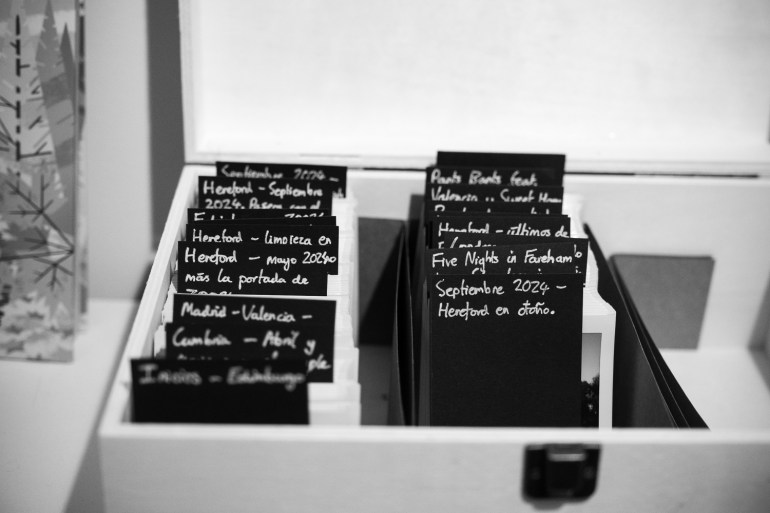 Septiembre 2024 -
Hereford - Septiembre
2024. Paseo con el
Hereford - limpieza en
Hereford - mayo 2024
más la portada de
Madrid - Valencia -
Cumbria - Abril y
Inicios - Edimburgo
Pants Bants feat.
Valencia y Sweet Home
Hereford - últimos de
Londres
Five Nights in Fareham
Septiembre 2024 -
Hereford en otoño.